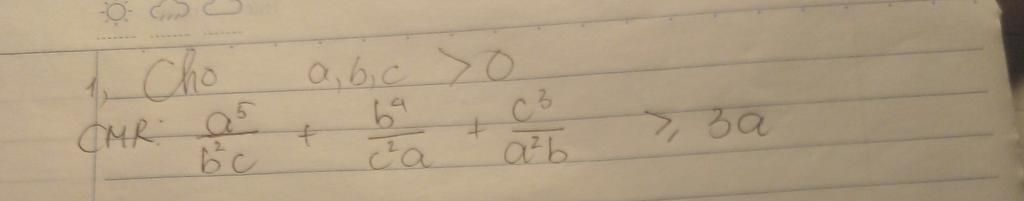 1, Cho a,b,c > 0
CMR: a⁵/b²c + b⁴/c²a + c³/a²b ≥ 3a